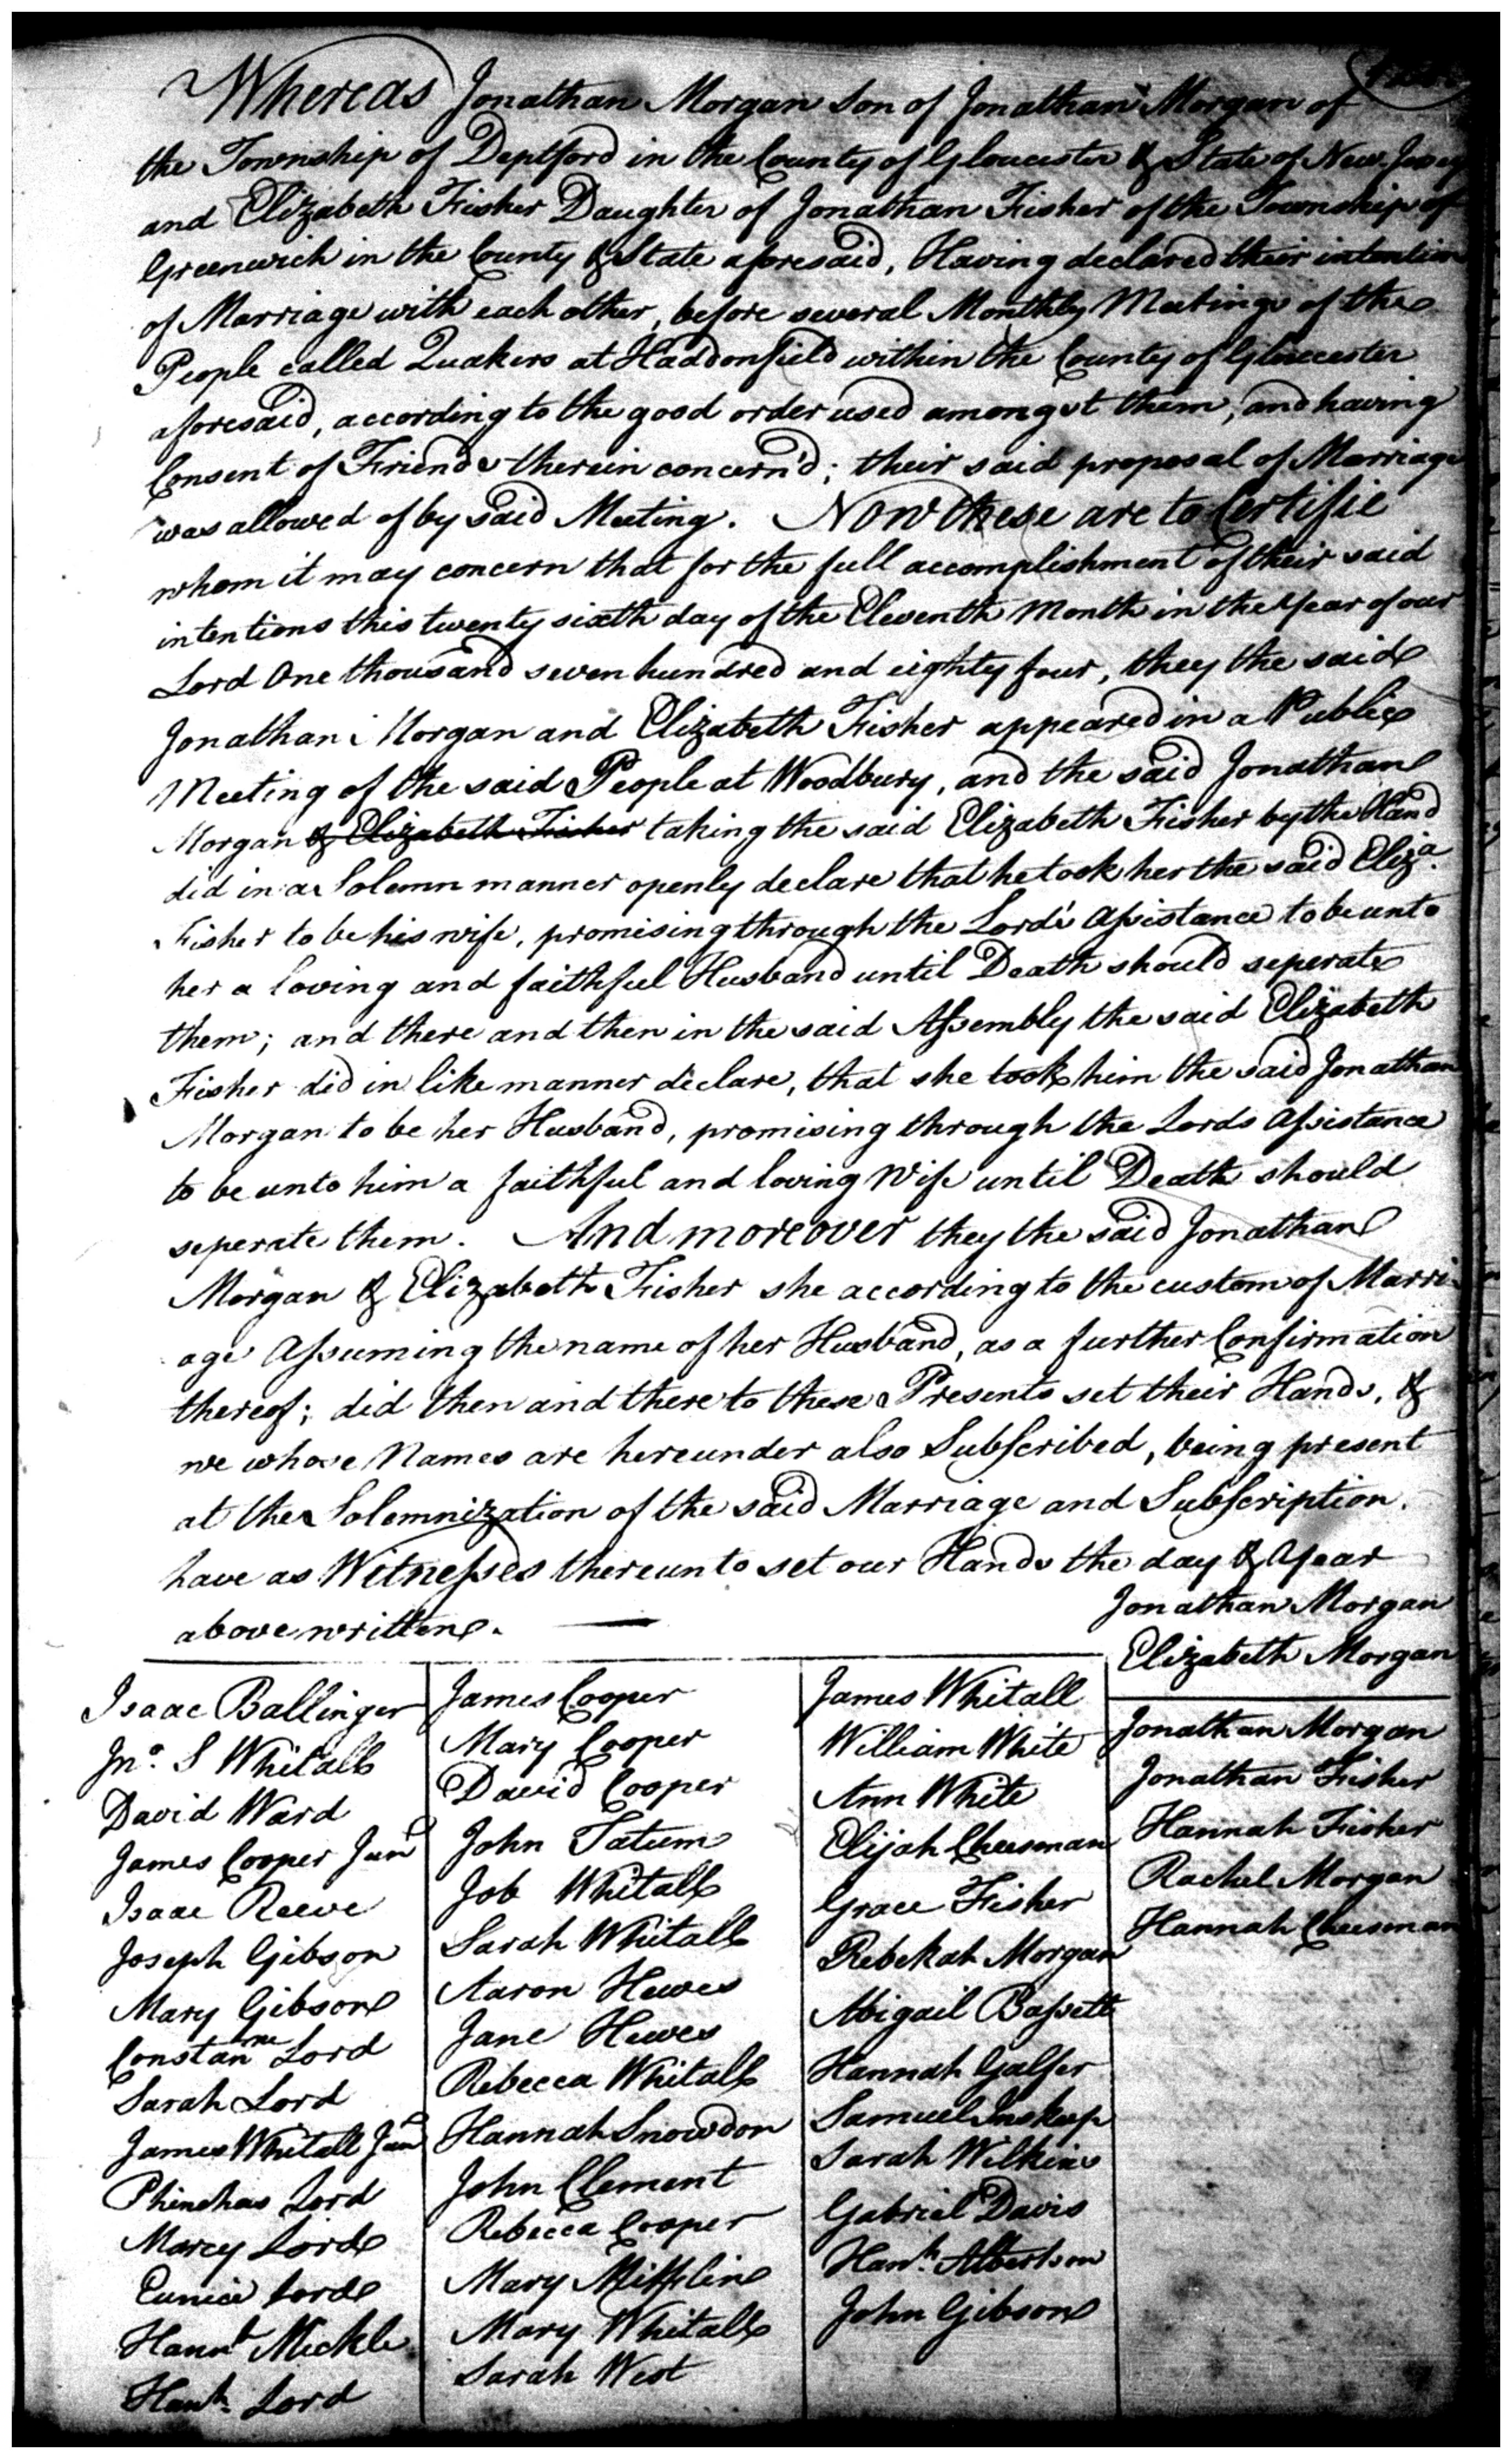 Whereas Jonathan Morgan Son of Jonathan Morgan of
the Township of Deptford in the County of Gloucester & State of New Jersey
and Elizabeth Fisher Daughter of Jonathan Fisher of the Township of
Greenwich in the County & State aforesaid, Having declared their intention
of Marriage with each other, before several Monthly Meetings of the
People called Quakers at Haddonfield within the County of Gloucester
aforesaid, according to the good order used amongst them, and having
Consent of Friends therein concern'd; their said proposal of Marriage
was allowed of by said Meeting. Now these are to Certifie
whom it may concern that for the full accomplishment of their said
intentions this twenty sixth day of the Eleventh Month in the Year of our
Lord One thousand seven hundred and eighty four, they the said
Jonathan Morgan and Elizabeth Fisher appeared in a Public
Meeting of the said People at Woodbury, and the said Jonathan
Morgan & Elizabeth Fisher taking the said Elizabeth Fisher by the Hand
did in a Solemn manner openly declare that he took her the said Eliza.
Fisher to be his wife, promising through the Lord's Assistance to be unto
her a loving and faithful Husband until Death should seperate
them; and there and then in the said Assembly the said Elizabeth
Fisher did in like manner declare, that she took him the said Jonathan
Morgan to be her Husband, promising through the Lords Assistance
to be unto him a faithful and loving Wife until Death should
seperate them. And moreover they the said Jonathan
Morgan & Elizabeth Fisher she according to the custom of Marri
age Assuming the name of her Husband, as a further Confirmation
thereof; did then and there to these Presents set their Hands, &
we whose Names are hereunder also Subscribed, being present
at the Solemnization of the said Marriage and Subscription.
have as Witnesses thereunto set our Hands the day & Year
above written.
Jonathan Morgan
Elizabeth Morgan
Isaac Ballinger
Jno. S Whitall
David Ward
James Cooper Junr
Isaac Reeve
Joseph Gibson
Mary Gibson
Constanne Lord
Sarah Lord
James Whitall Jun
Phinehas Lord
Marcy Lord
Eunice Lord
Hannh Mickle
Hanh. Lord
James Cooper
Mary Cooper
David Cooper
John Tatum
Job Whitall
Sarah Whitall
Aaron Hewes
Jane Hewes
Rebecca Whitall
Hannah Snowdon
John Clement
Rebecca Cooper
Mary Mifflin
Mary Whitall
Sarah West
James Whitall
William White
Ann White
Elijah Cheesman
Grace Fisher
Rebekah Morgan
Abigail Bassett
Hannah
Samuel Inskeep
Sarah Wilkins
Gabriel Davis
Hanh. Albertson
John Gibson
Jonathan Morgan
Jonathan Fisher
Hannah Fisher
Rachel Morgan
Hannah Cheesman